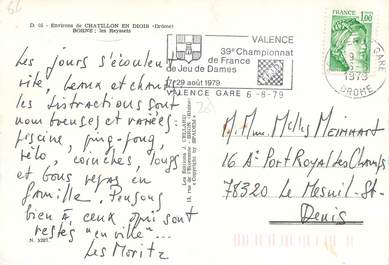 D. 05 - Environs de CHATILLON EN DIOIS (Drôme)
BOHNE; les Reyssets
VALENCE
39e Championnat
de France
de Jeu de Dames
29 août 1979
VALENCE GARE 6-8-79
FRANCE
1,00
GARE
1979
DROME
Les jours s'écoulent
vite, beaux et chauds
les distractions sont
nombreuses et variées:
piscine, ping-pong,
vélo, coinches, longs
et bons repas en
famille. Pensons
bien à ceux qui sont
restés "en ville"...
Les Moritz
N. 5207
Editions J. CELLARD
Copyright by SPADEM
M. Mme Melles Meinhart
16 A Port Royal des Champs
78320 Le Mesnil-St-
Denis